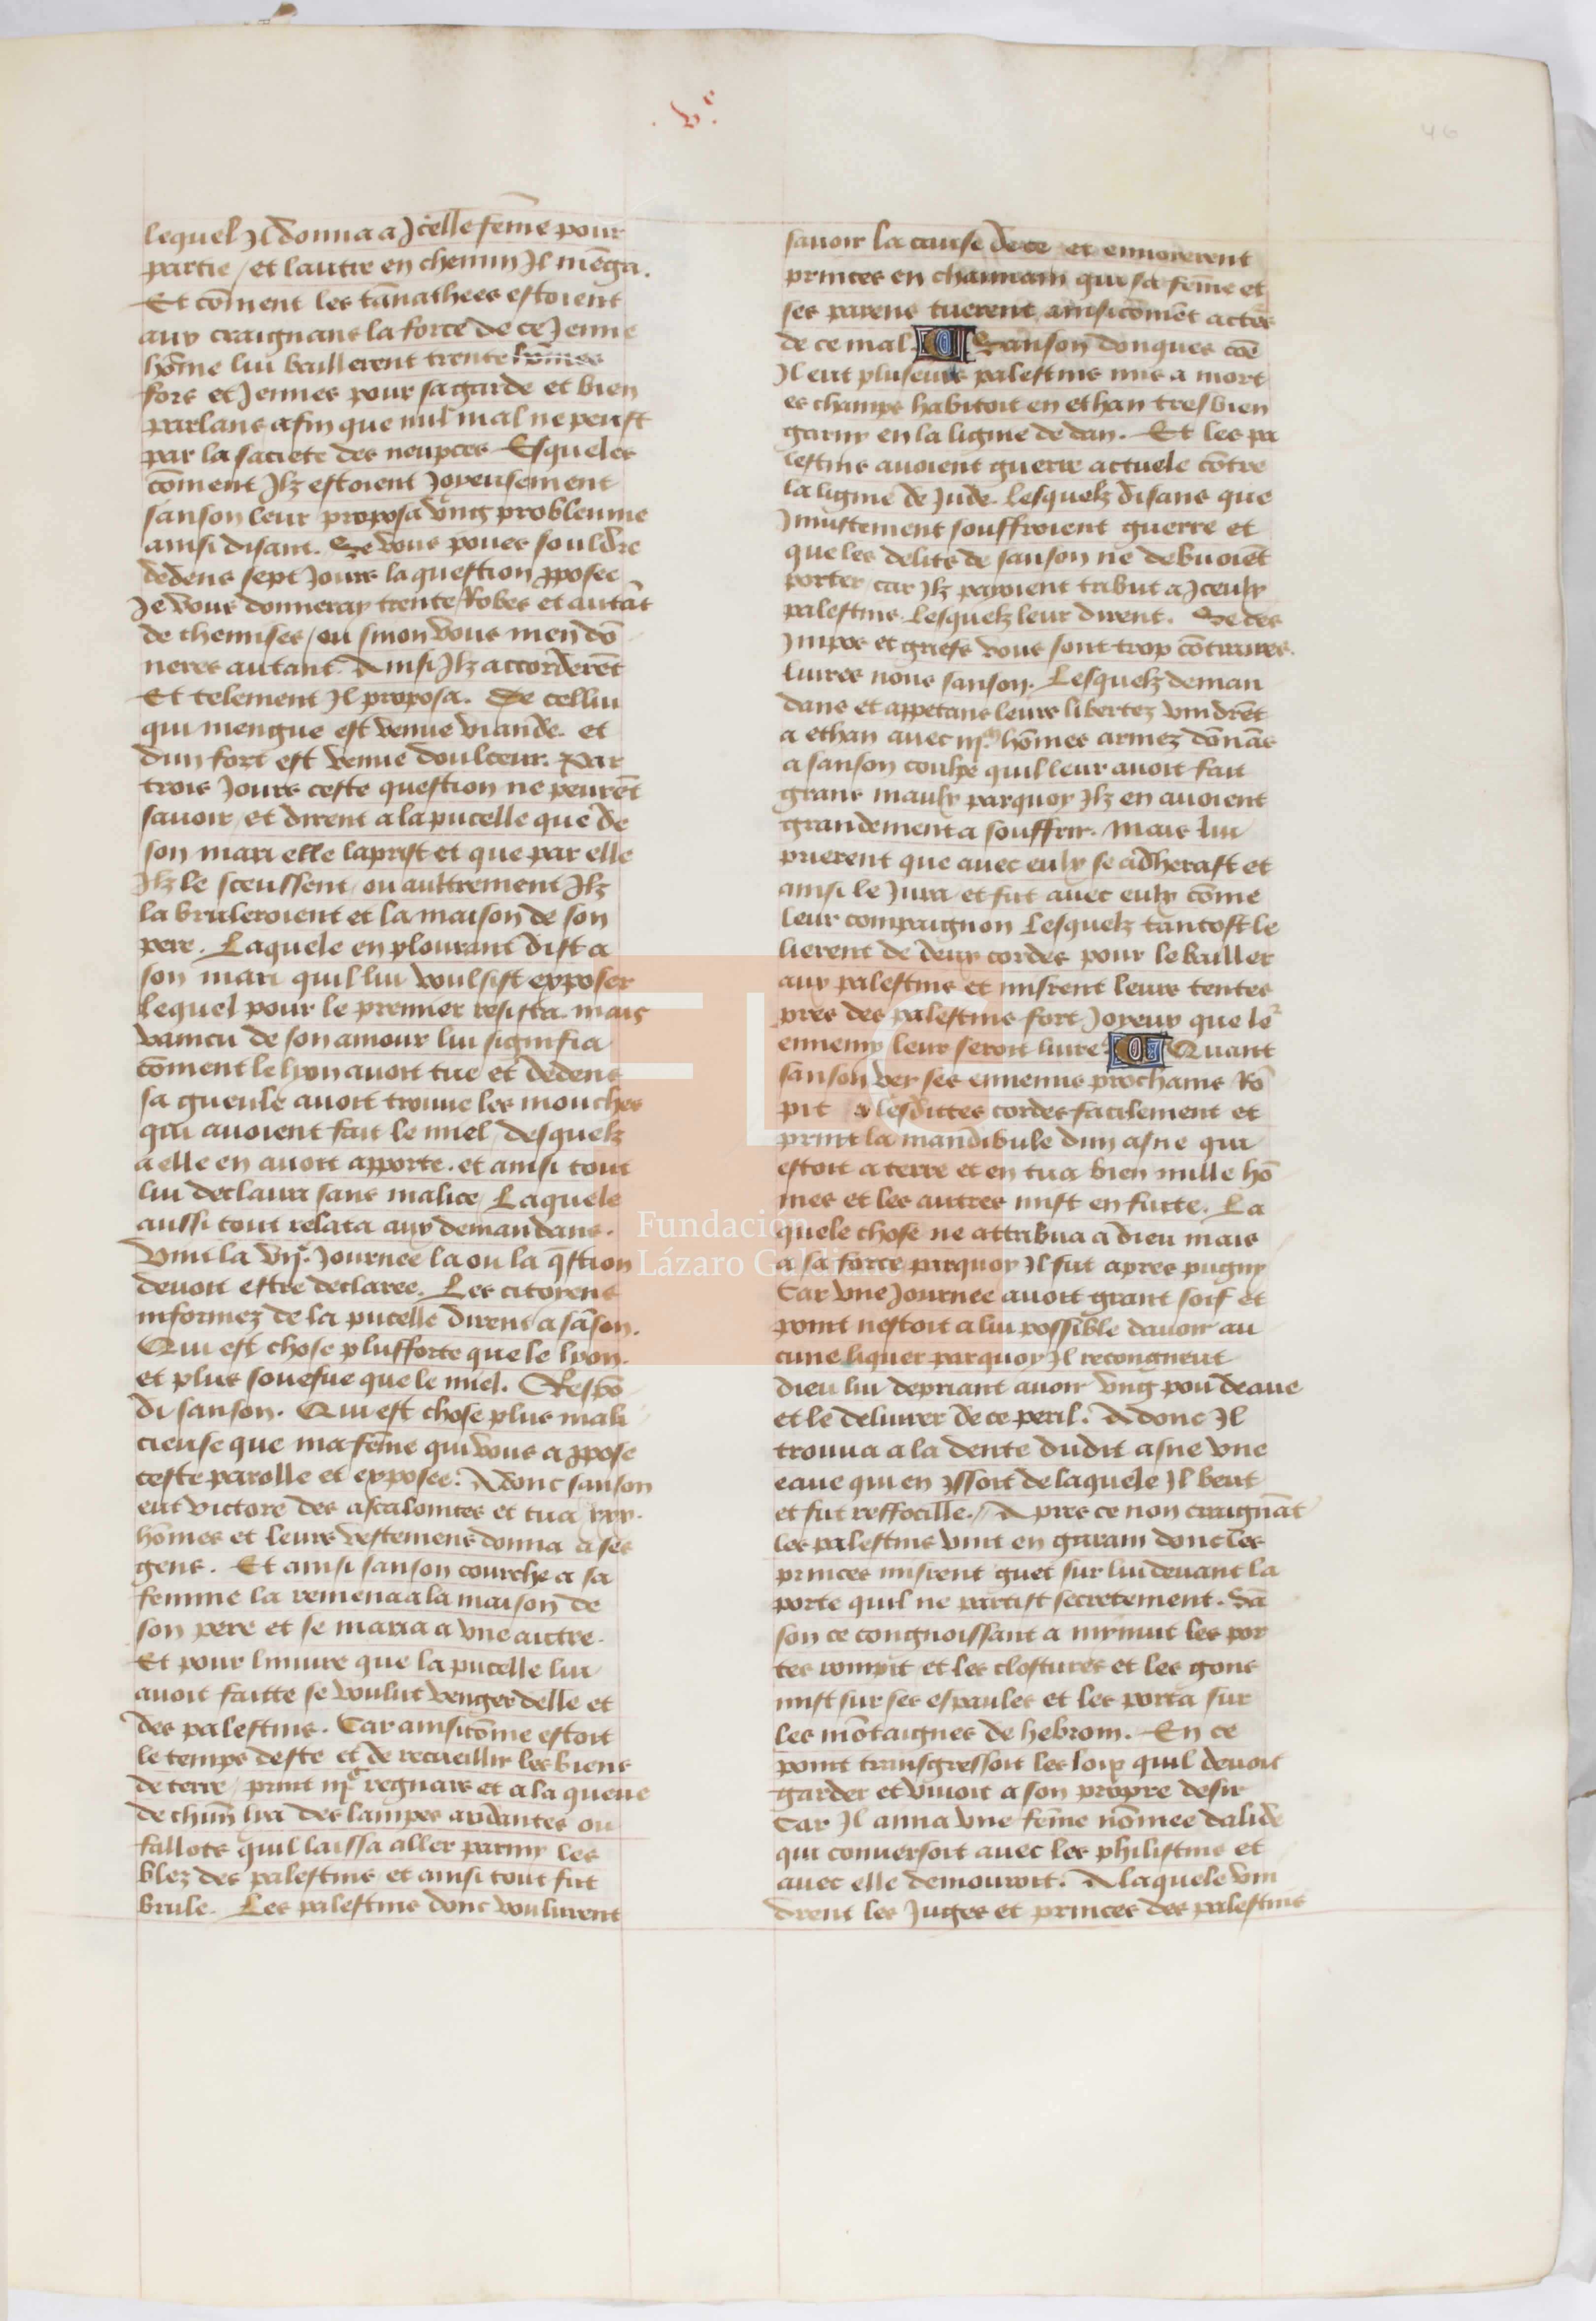 .v.ͨ
46
lequel Il donna a Jcelle fem̄e pour
partie / et lautre en chemin Il mēga.
Et cōment les tānathees estoient
aux craignans la force de ce Jenne
hōme lui baillerent trente hōmes
fors et Jennes pour sa garde et bien
parlans afin que nul mal ne peust
par la saciete des neupces Esqueles
cōment Ilz estoient Joyeusement
sanson leur proposa vng probleume
ainsi disant. Se vous poues souldre
dedens sept Jours la question p̱posee
Je vous donneray trente Robes et autāt
de chemises / ou sinon vous men dō
neres autant. Ainsi Ilz accorderēt
Et telement Il proposa. De cellui
qui mengue est venue viande. et
dun fort est venue doulceur. Par
trois Jours ceste question ne peurēt
sauoir / et dirent a la pucelle que de
son mari elle laprist et que par elle
Ilz le sceussent / ou aultrement Ilz
la bruleroient et la maison de son
pere. Laquele en plourant dist a
son mari quil lui voulsist exposer
lequel pour le premier resista. mais
vaincu de son amour lui signifia
cōment le lyon auoit tue et dedens
sa gueule auoit trouue les mouches
qui auoient fait le miel / desquelz
a elle en auoit apporte. et ainsi tout
lui declaira sans malice / Laquele
aussi tout relata aux demandans.
Vint la vij.ᵉ Journee la ou la q̄stion
deuoit estre declaree. Les citoyens
informez de la pucelle dirent a sāson.
Qui est chose plusforte que le lyon.
et plus souefue que le miel. Respō
di sanson. Qui est chose plus mali
cieuse que ma fem̄e qui vous a p̱pose
ceste parolle et exposee. Adonc sanson
eut victore des ascalonites et tua xxx.
hōmes et leurs vestemens donna a ses
gens. Et ainsi sanson courche a sa
femme la remena a la maison de
son pere et se maria a vne autre.
Et pour liniure que la pucelle lui
auoit faitte se voulut venger delle et
des palestins. Car ainsicōme estoit
le temps deste et de recueillir les biens
de terre / print iijᶜ regnars et a la queue
de chūn lia des lampes ardantes ou
fallots quil laissa aller parmy les
blez des palestins et ainsi tout fut
brule. Les palestins donc voulurent
sauoir la cause de ce et enuoierent
princes en chamnam qui sa fem̄e et
ses parens tuerent ainsicomēt actēs
de ce mal. Sanson donques cōe
Il eut pluseurs palestins mis a mort
es champs habitoit en ethan tresbien
garny en la ligne de dan. Et les pa
lestins auoient guerre actuele cōtre
la ligne de Jude. Lesquelz disans que
Iniustement souffroient guerre et
que les delits de sanson ne debuoiēt
porter / car Ilz payoient tribut a Jceulx
palestins. Lesquelz leur dirent. Se des
Impos et griefs vous sont trop cōtraires.
liures nous sanson. Lesquelz deman
dans et appetans leurs libertez vindrēt
a ethan auec iij.ᵐ hōmes armez dōnās
a sanson coulpe quil leur auoit fait
grans maulx parquoy Ilz en auoient
grandement a souffrir. Mais lui
prierent que auec eulx se adherast et
ainsi le Jura / et fut auec eulx cōme
leur compaignon Lesquelz tantost le
lierent de deux cordes pour le bailler
aux palestins et misrent leurs tentes
pres des palestins fort Joyeux que le
ennemy leur seroit liure. Quant
sanson vey ses ennemis prochains Rō
pit lesdittes cordes facilement et
print la mandibule dun asne qui
estoit a terre et en tua bien mille hō
mes et les autres mist en fuite. La
quele chose ne attribua a dieu mais
a sa force parquoy Il fut apres pugny
Car vne Journee auoit grant soif et
point nestoit a lui possible dauoir au
cune liquer parquoy Il recongneut
dieu lui depriant auoir vng pou deaue
et le deliurer de ce peril. Adonc Il
trouua a la dente dudit asne vne
eaue qui en yssoit de laquele Il beut
et fut reffocille. Apres ce non craignāt
les palestins vint en gazam donc les
princes misrent guet sur lui deuant la
porte quil ne partist secretement. Sā
son ce congnoissant a mynuit les por
tes rompit et les clostures et les gons
mist sur ses espaules et les porta sur
les mōtaignes de hebrom. En ce
point transgressoit les loix quil deuoit
garder et viuoit a son propre desir
Car Il aima vne fem̄e nōmee dalide
qui conuersoit auec les philistins et
auec elle demouroit. A laquele vin
drent les Juges et princes des palestins
Fundación
Lázaro Galdiano